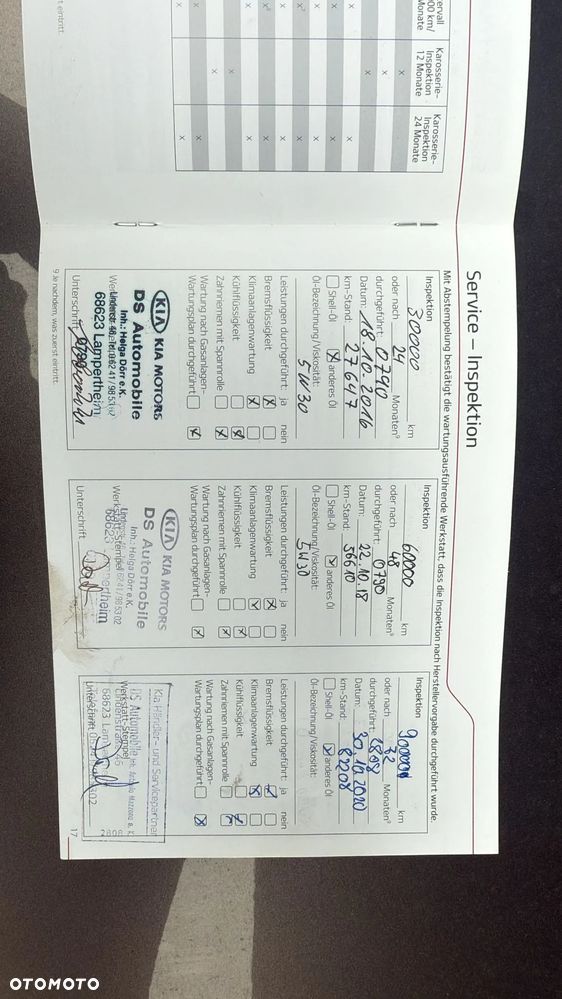 ervall
00 km/
Monate
Karosserie-
Inspektion
12 Monate
Karosserie-
Inspektion
24 Monate
Service – Inspektion
Mit Abstempelung bestätigt die wartungsausführende Werkstatt, dass die Inspektion nach Herstellervorgabe durchgeführt wurde.
Inspektion
30000 km
oder nach 24 Monaten⁹
durchgeführt: 0790
Datum: 18.10.2016
km-Stand: 27647
Shell-Öl x anderes Öl
Öl-Bezeichnung/Viskosität:
5W30
Leistungen durchgeführt: ja nein
Bremsflüssigkeit x
Klimaanlagenwartung x
Kühlflüssigkeit x
Zahnriemen mit Spannrolle x
Wartung nach Gasanlagen-
Wartungsplan durchgeführt x
KIA KIA MOTORS
DS Automobile
Inh.: Helga Dörr e.K.
68623 Lampertheim
Unterschrift
9 Je nachdem, was zuerst eintritt.
Inspektion
60000 km
oder nach 48 Monaten⁹
durchgeführt: 0790
Datum: 22.10.18
km-Stand: 56610
Shell-Öl x anderes Öl
Öl-Bezeichnung/Viskosität:
5W30
Leistungen durchgeführt: ja nein
Bremsflüssigkeit x
Klimaanlagenwartung x
Kühlflüssigkeit x
Zahnriemen mit Spannrolle x
Wartung nach Gasanlagen-
Wartungsplan durchgeführt x
KIA KIA MOTORS
DS Automobile
Inh.: Helga Dörr e.K.
Werkstatt-Stempel
68623
Unterschrift
Inspektion
90000 km
oder nach 72 Monaten⁹
durchgeführt:
Datum: 30.10.2020
km-Stand: 82208
Shell-Öl x anderes Öl
Öl-Bezeichnung/Viskosität:
Leistungen durchgeführt: ja nein
Bremsflüssigkeit x
Klimaanlagenwartung x
Kühlflüssigkeit x
Zahnriemen mit Spannrolle x
Wartung nach Gasanlagen-
Wartungsplan durchgeführt x
Kia Händler- und Servicepartner
DS Automobile
Werkstatt-Stempel
68623
Unterschrift
17
OTOMOTO